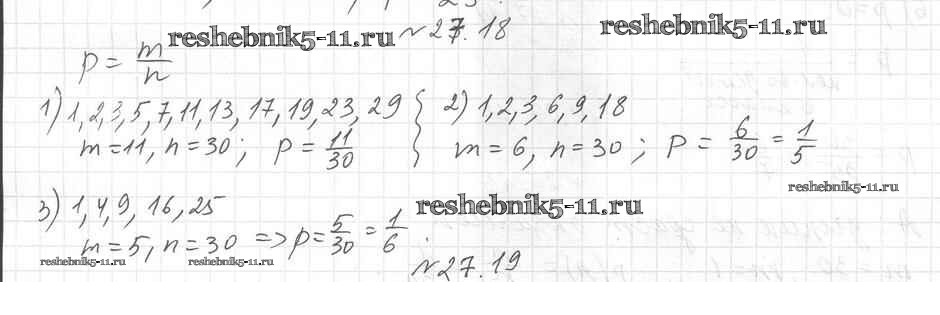 reshebnik5-11.ru №27.18 reshebnik5-11.ru
p = m/n
1) 1, 2, 3, 5, 7, 11, 13, 17, 19, 23, 29
m = 11, n = 30; p = 11/30
2) 1, 2, 3, 6, 9, 18
m = 6, n = 30; p = 6/30 = 1/5
reshebnik5-11.ru
3) 1, 4, 9, 16, 25
reshebnik5-11.ru
m = 5, n = 30 => p = 5/30 = 1/6.
reshebnik5-11.ru reshebnik5-11.ru
№27.19